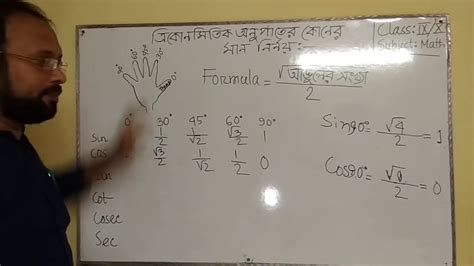 ত্রিকোনমিতিক অনুপাতের কোনের
মান নির্নয়:
Class: IX/X
Subject: Math
90° 60° 45° 30° 0°
Formula = √আঙুলের সংখ্যা / 2
0° 30° 45° 60° 90°
Sin 1/2 1/√2 √3/2 1
Cos √3/2 1/√2 1/2 0
tan
Cot
Cosec
Sec
Sin90° = √4/2 = 1
Cos90° = √0/2 = 0